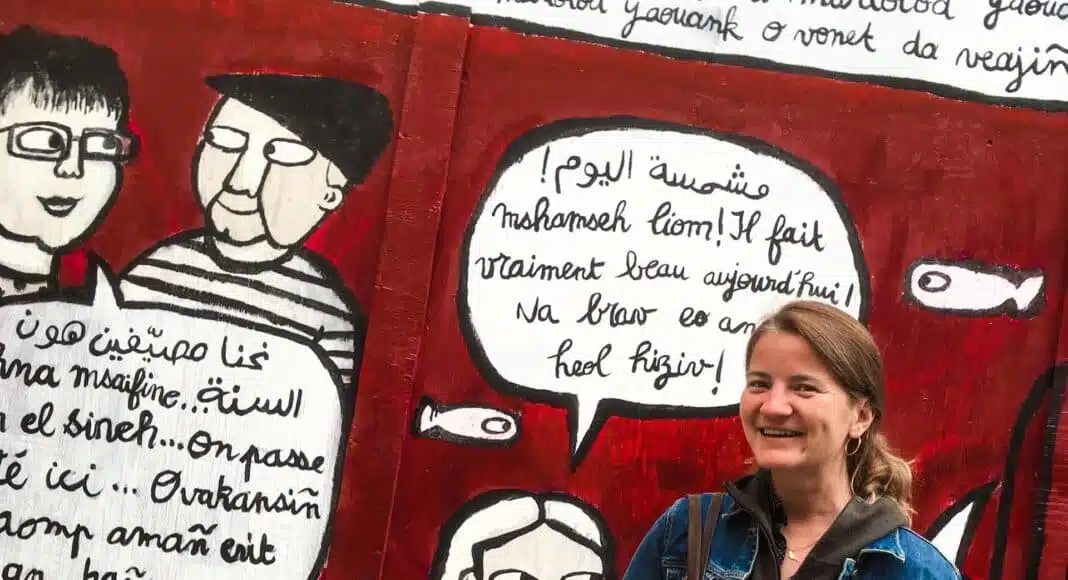 mardolod yaoua
mardolod yaouank o vonet da veajiñ
مشمسة اليوم!
mshamseh liom! Il fait
vraiment beau aujourd'hui!
Na brav eo an
heol hiziv!
نحنا مصيّفين هون
hna msaifine... السنة
el sineh... on passe
té ici ... Ovakansiñ
aomp amañ evit
an hañ